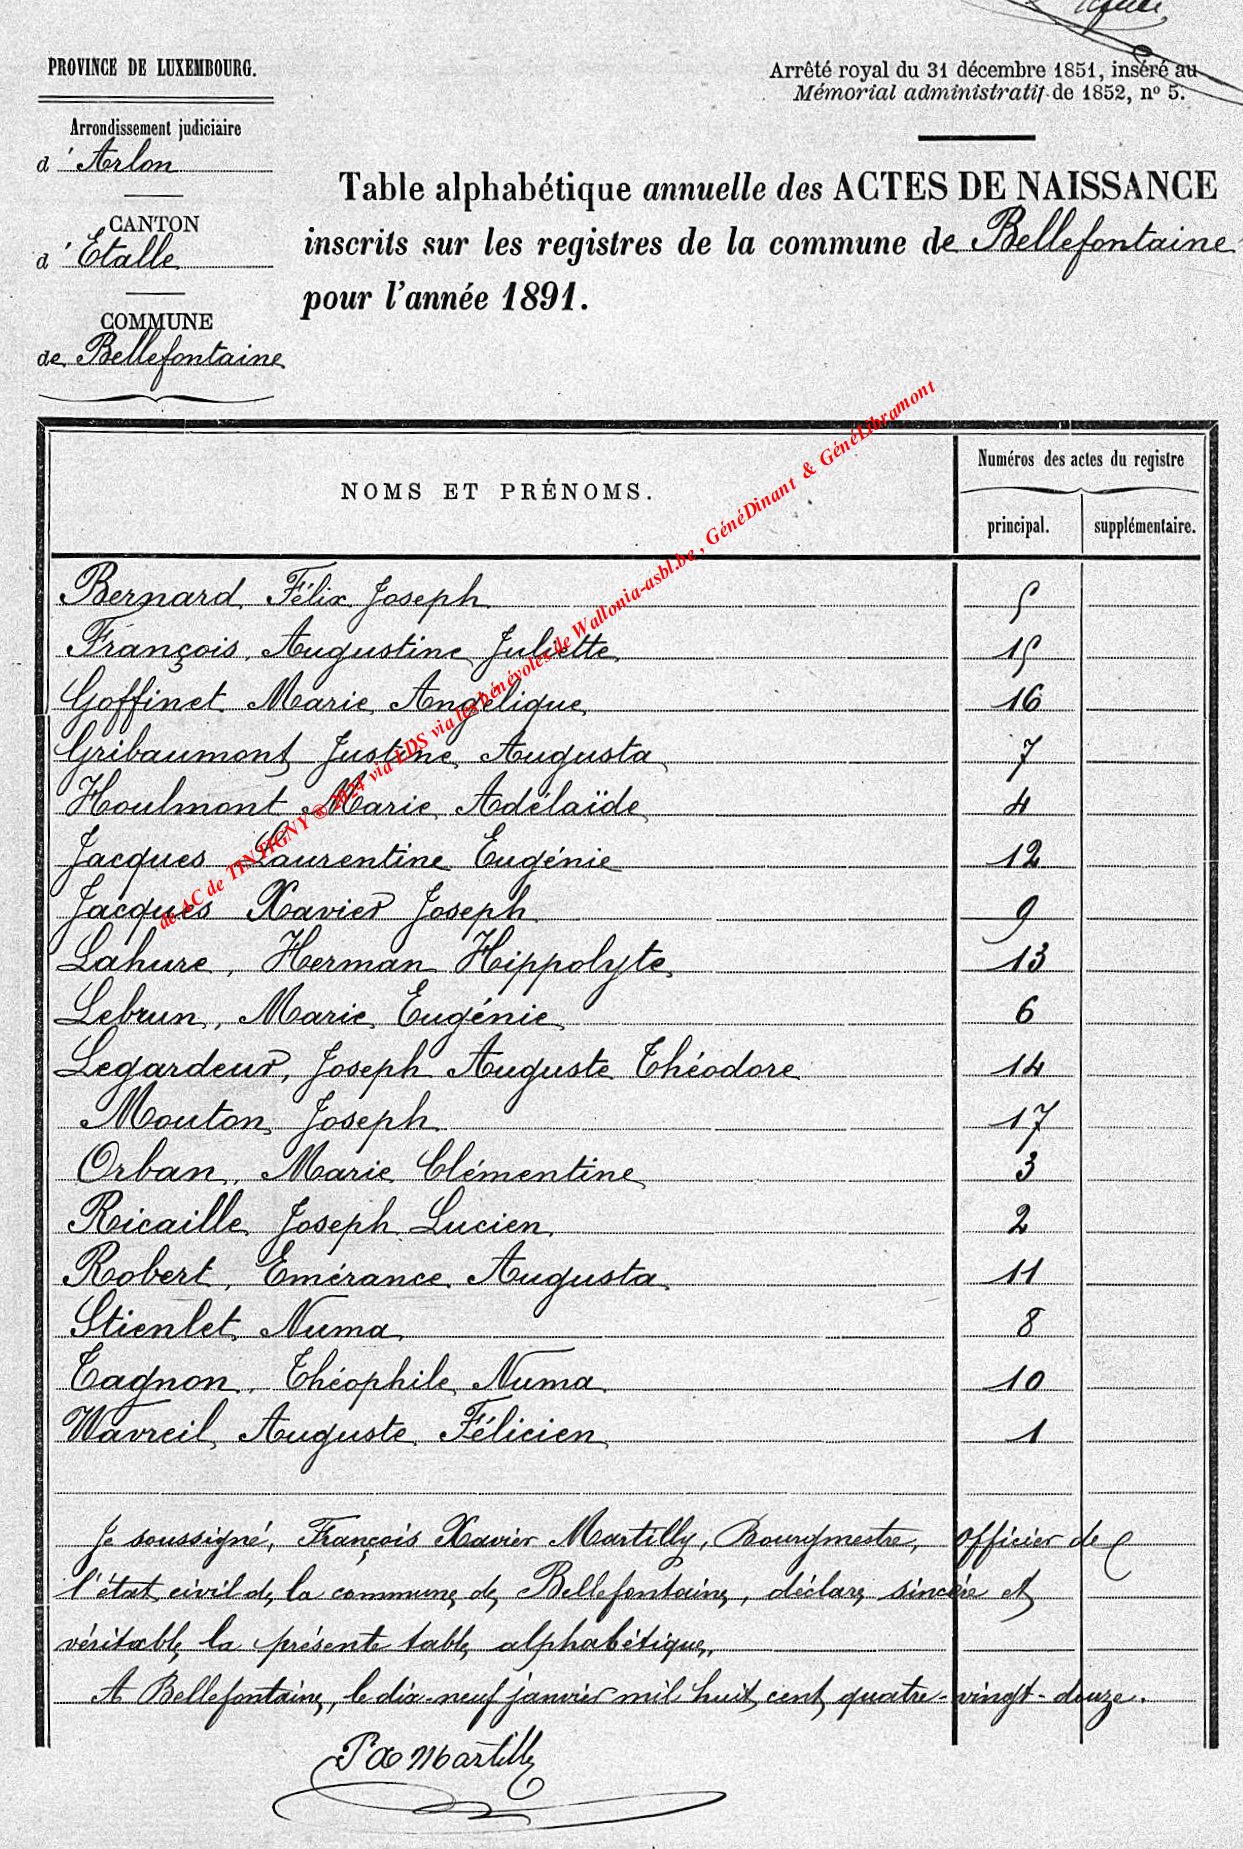 PROVINCE DE LUXEMBOURG.
Arrêté royal du 31 décembre 1851, inséré au
Mémorial administratif de 1852, nº 5.
Arrondissement judiciaire
d'Arlon
CANTON
d'Etalle
COMMUNE
de Bellefontaine
Table alphabétique annuelle des ACTES DE NAISSANCE
inscrits sur les registres de la commune de Bellefontaine
pour l'année 1891.
NOMS ET PRÉNOMS.
Numéros des actes du registre
principal. supplémentaire.
Bernard Félix Joseph 5
François, Augustine Juliette 15
Goffinet Marie Angélique 16
Gribaumont Justine Augusta 7
Houlmont Marie Adélaïde 4
Jacques Laurentine Eugénie 12
Jacques Xavier Joseph 9
Lahure, Herman Hippolyte 13
Lebrun, Marie Eugénie 6
Legardeur, Joseph Auguste Théodore 14
Mouton Joseph 17
Orban, Marie Clémentine 3
Ricaille Joseph Lucien 2
Robert, Emérance Augusta 11
Stienlet Numa 8
Tagnon, Théophile Numa 10
Wavreil Auguste Félicien 1
Je soussigné, François Xavier Martilly, Bourgmestre, officier de
l'état civil de la commune de Bellefontaine, déclare sincère et
véritable la présente table alphabétique.
A Bellefontaine, le dix-neuf janvier mil huit cent quatre-vingt-douze.
Martilly
de AC de TINTIGNY ® 2024 via LDS via les bénévoles de Wallonia-asbl.be , GénéDinant & GénéLibramont